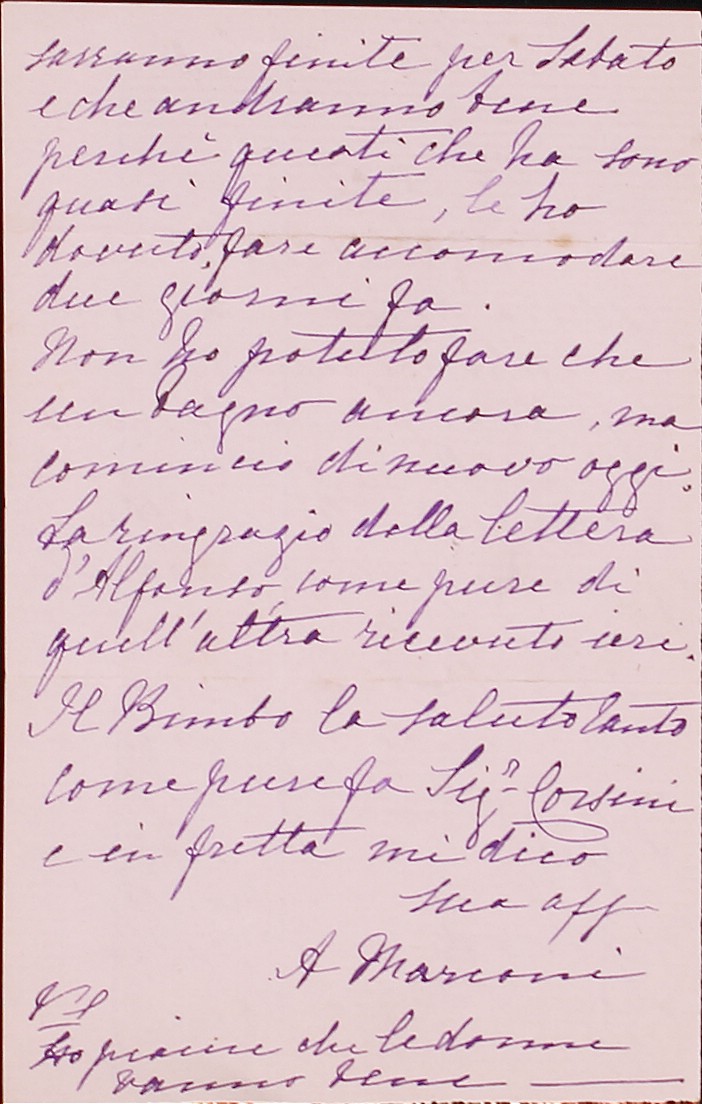 sarranno finite per Sabato
e che andranno bene
perchè questi che ha sono
quasi finite, le ho
dovuto fare accomodare
due giorni fa.
Non ho potuto fare che
un bagno ancora, ma
comincio di nuovo oggi.
La ringrazio della lettera
d'Alfonso, come pure di
quell'altra ricevuto ieri.
Il Bimbo la saluto tanto
come pure fa Sigr. Corsini
e in fretta mi dico
sua aff
A Marconi
Ho piacere che le donne
vanno bene